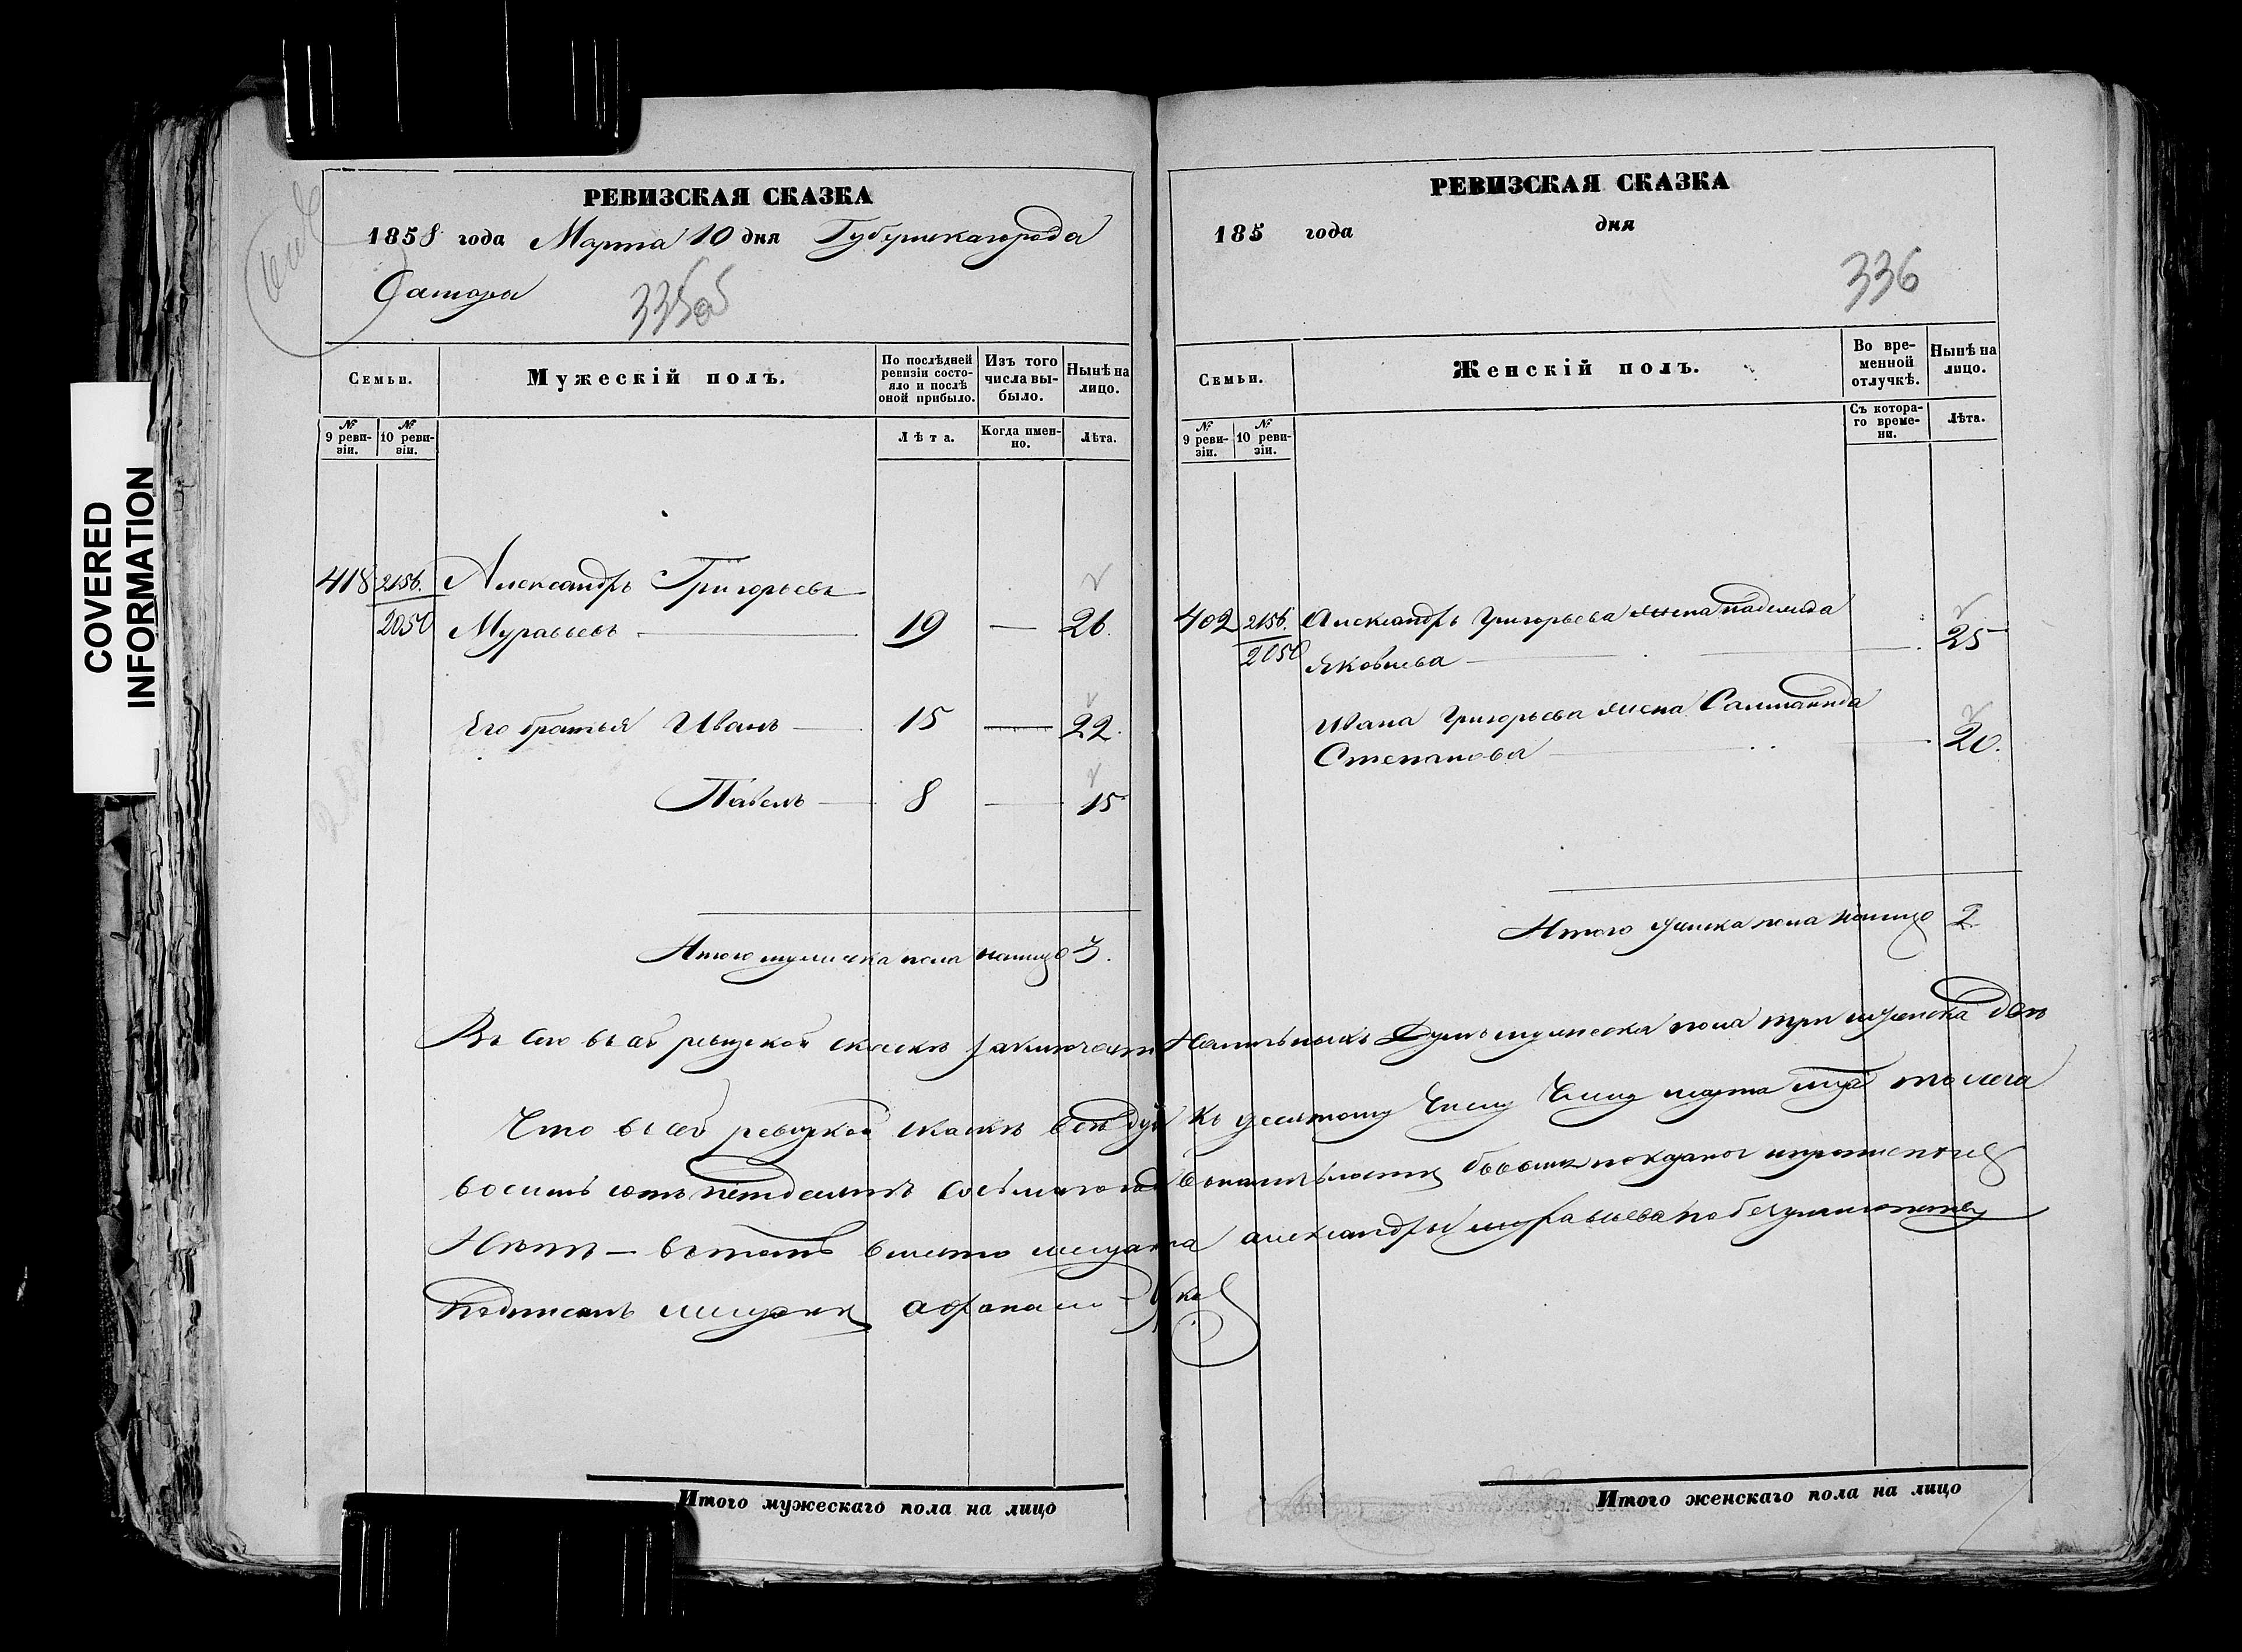 РЕВИЗСКАЯ СКАЗКА
1858 года Марта 10 дня Губернскагорода
Самары
335об
Семьи.
Мужескій полъ.
По послѣдней ревизіи состояло и послѣ оной прибыло.
Изъ того числа выбыло.
Нынѣ на лицо.
№ 9 ревизіи.
№ 10 ревизіи.
Лѣта.
Когда именно.
Лѣта.
418 2156. Александръ Григорьевъ
2050 Муравьевъ — 19 — 26.
Его братья Иванъ — 15 — 22.
Павелъ — 8 — 15
Итого мужеска пола налицо 3.
РЕВИЗСКАЯ СКАЗКА
185 года дня
336
Семьи.
Женскій полъ.
Во временной отлучкѣ.
Нынѣ на лицо.
№ 9 ревизіи.
№ 10 ревизіи.
Съ котораго времени.
Лѣта.
402 2156. Александръ Григорьева жена надежда
2050 Яковлева — 25
Ивана Григорьева жена
Степанова — 20.
Итого женска пола налицо 2.
Въ сей ревизской сказки заключает наличныхъ Душъ мужеска пола три женска две
Что всей ревизской сказки къ десятому Числу марта тысеча
восемь сотъ петдесятъ
Нетъ — въ томъ вместо мещанина александры муравьева
подписалъ мещанинъ афонасий
Итого мужескаго пола на лицо
Итого женскаго пола на лицо
COVERED
INFORMATION